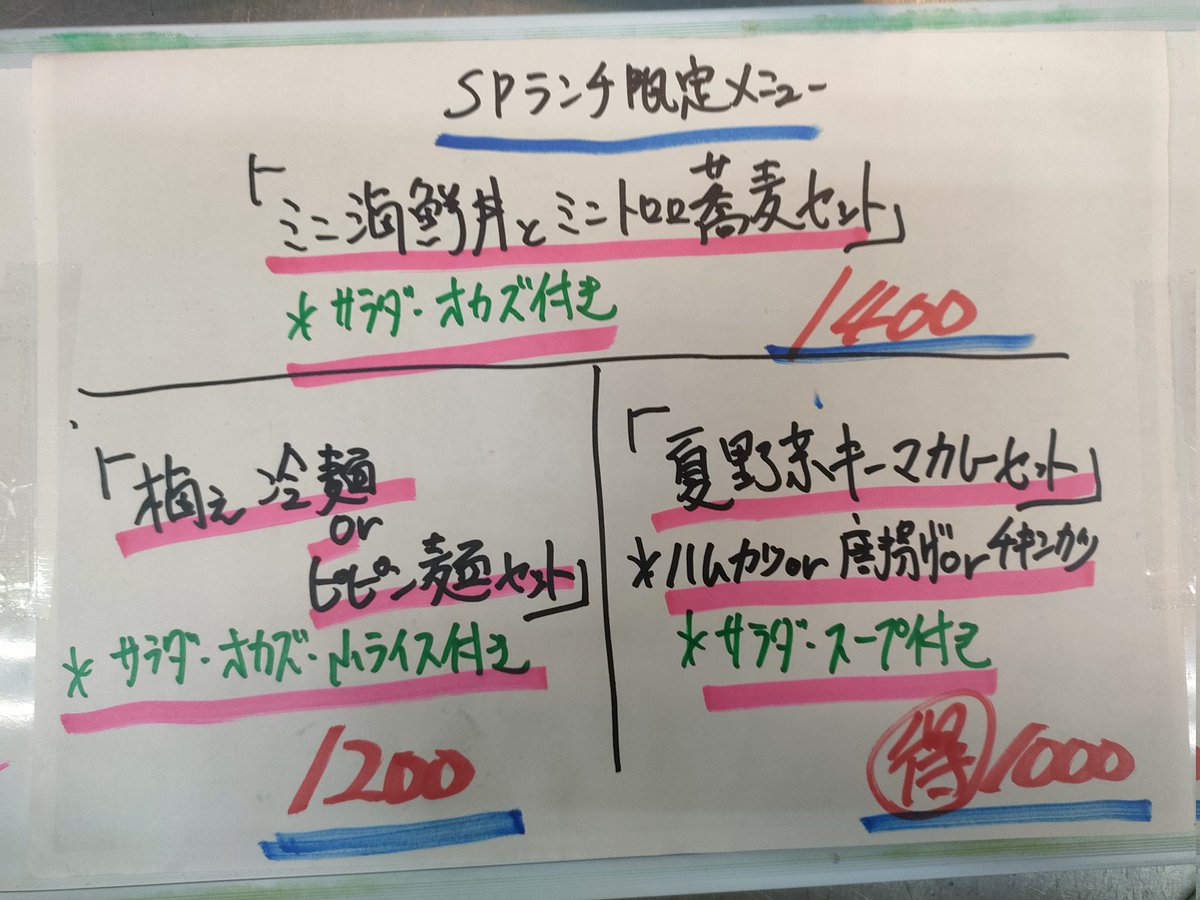 SPランチ限定メニュー
「ミニ海鮮丼とミニトロロ蕎麦セット」
*サラダ・オカズ付き
1400
「梅しそ冷麺
or
ビビン麺セット」
*サラダ・オカズ・小ライス付き
1200
「夏野菜キーマカレーセット」
*ハムカツor唐揚げorチキンカツ
*サラダ・スープ付き
得 1000